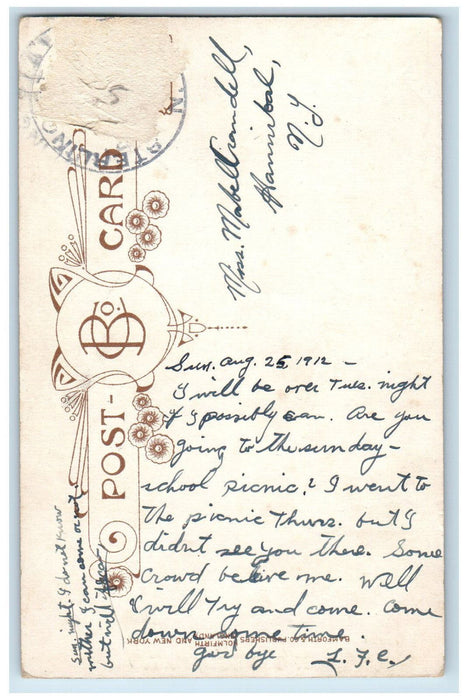 POST-CARD
B & Co.
STERLING
N.
Miss. Mabel
Hannibal,
N.Y.
Sun. Aug. 25 1912 -
I will be over Tues. night
if I possibly can. Are you
going to the sunday-
school picnic? I went to
the picnic Thurs. but I
didnt see you there. Some
Crowd believe me. Well
I will try and come. Come
down some time.
good bye L. F. C.
Sun. night, I don't know
wether I can come or not.
but will
BAMFORTH & CO. PUBLISHERS
HOLMFIRTH AND NEW YORK